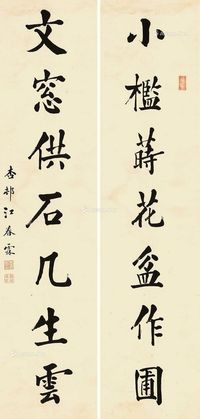 小檻蒔花盆作圃
文窓供石几生雲
杏邨江春霖